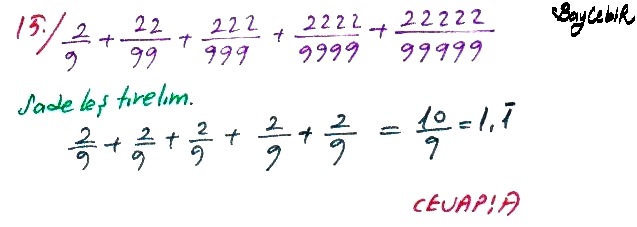 15./ 2/9 + 22/99 + 222/999 + 2222/9999 + 22222/99999
BayCebiR
Sadeleştirelim.
2/9 + 2/9 + 2/9 + 2/9 + 2/9 = 10/9 = 1,1̄
CEVAP: A